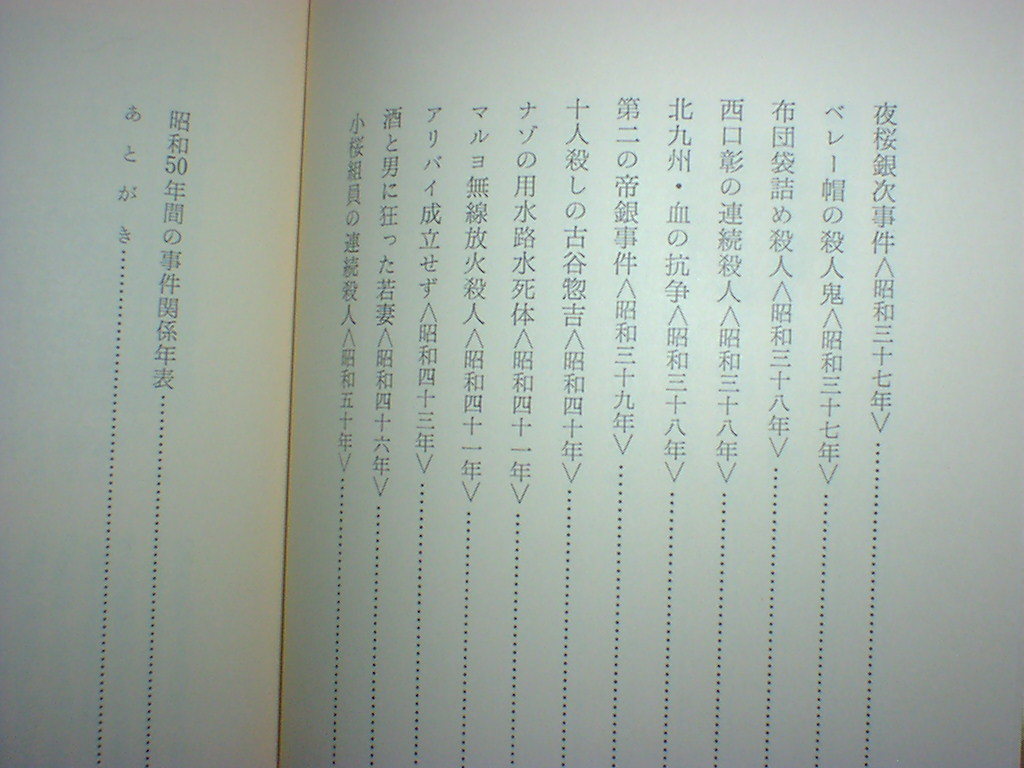 夜桜銀次事件＜昭和三十七年＞
ベレー帽の殺人鬼＜昭和三十七年＞
布団袋詰め殺人＜昭和三十八年＞
西口彰の連続殺人＜昭和三十八年＞
北九州・血の抗争＜昭和三十八年＞
第二の帝銀事件＜昭和三十九年＞
十人殺しの古谷惣吉＜昭和四十年＞
ナゾの用水路水死体＜昭和四十一年＞
マルヨ無線放火殺人＜昭和四十一年＞
アリバイ成立せず＜昭和四十三年＞
酒と男に狂った若妻＜昭和四十六年＞
小桜組員の連続殺人＜昭和五十年＞
昭和50年間の事件関係年表
あとがき